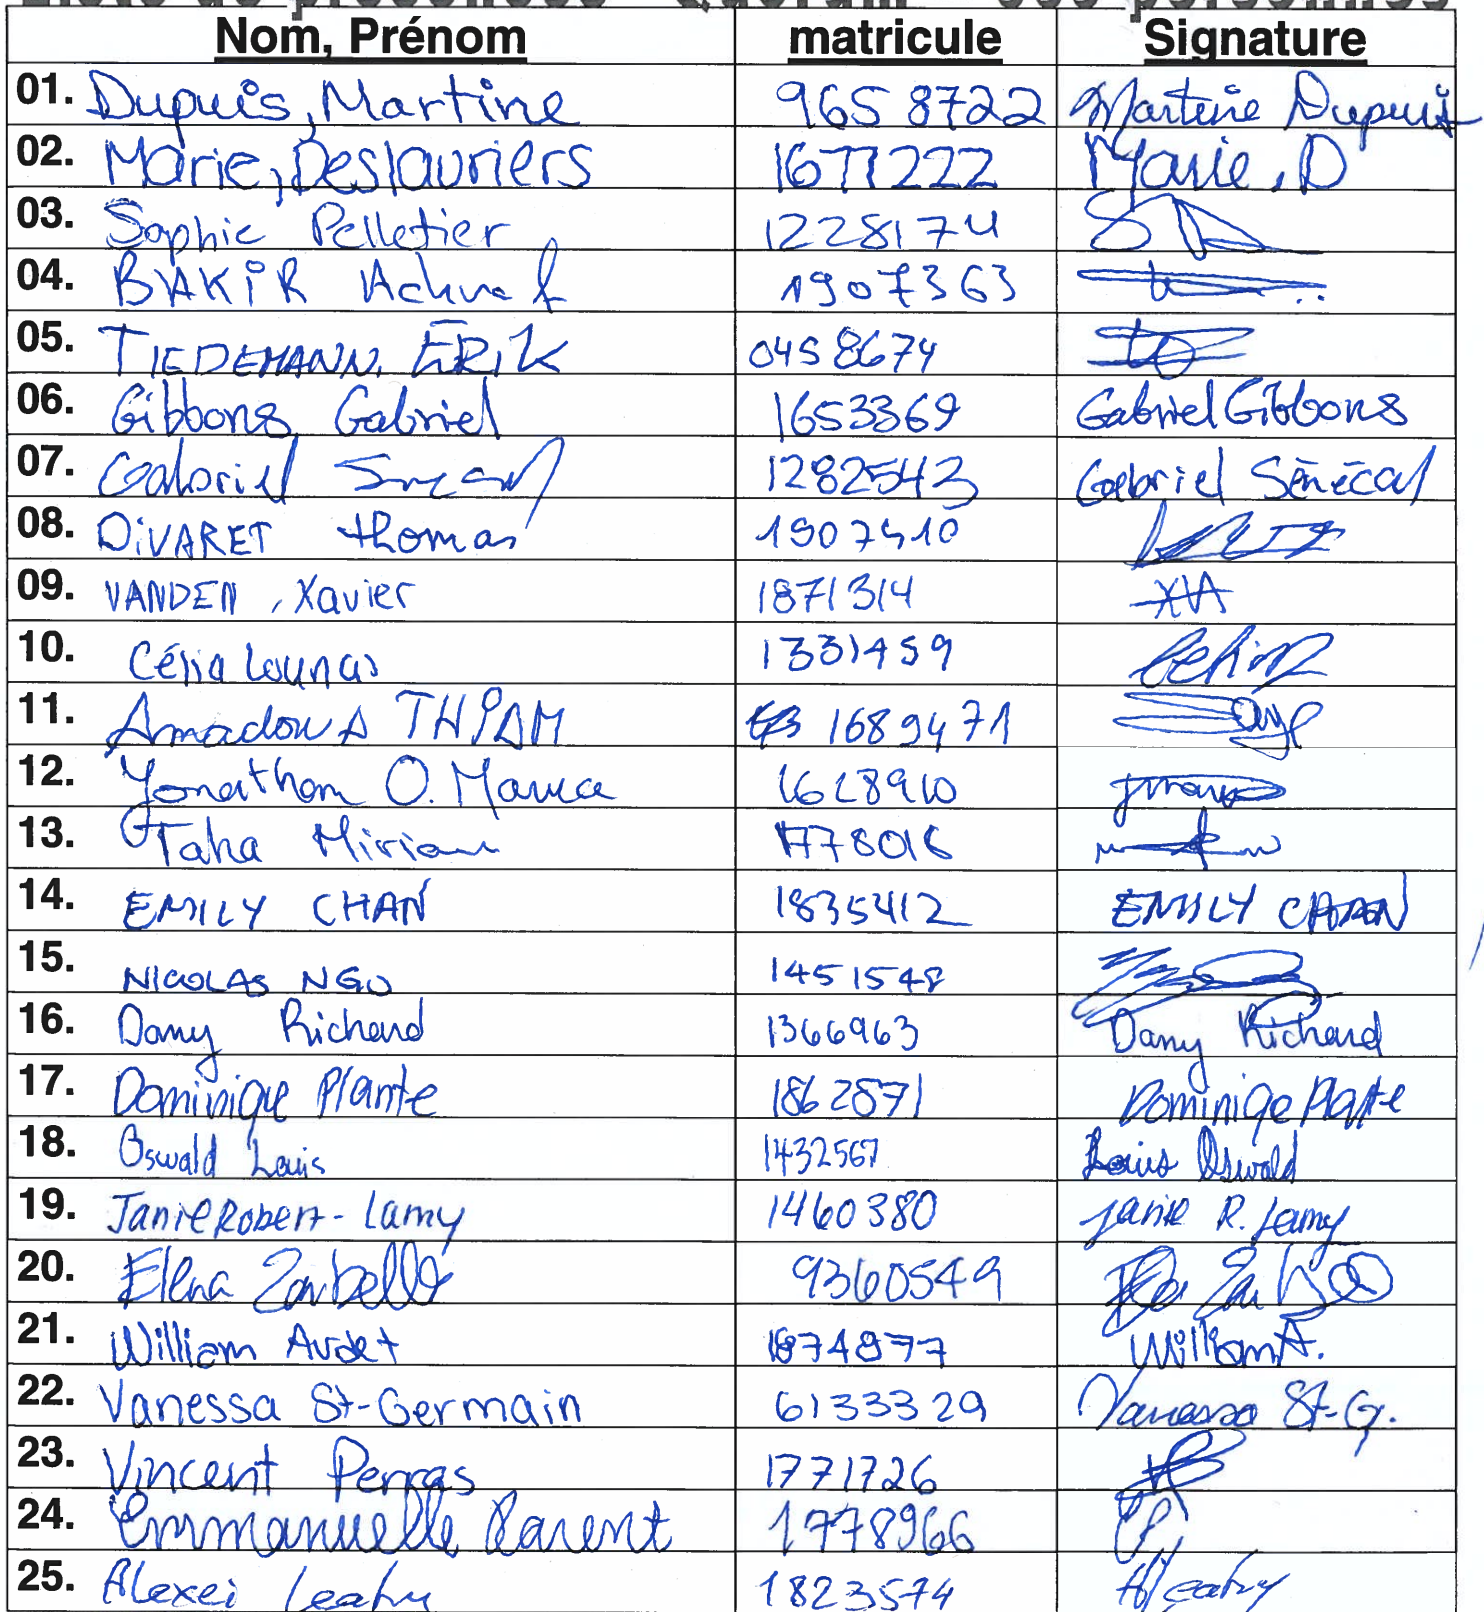 Liste de présences - Quorum
Nom, Prénom matricule Signature
01. Dupuis, Martine 9658722 Martine Dupuis
02. Marie, Deslauriers 1677222 Marie, D
03. Sophie Pelletier 1228174
04. BAKIR Achraf 1907363
05. TIEDEMANN, ERIK 0458674
06. Gibbons, Gabriel 1653369 Gabriel Gibbons
07. Gabriel Sénécal 1282543 Gabriel Sénécal
08. DIVARET thomas 1907410
09. VANDEN, Xavier 1871314 XVA
10. Célia Lounas 1331459
11. Amadou A THIAM 1689471
12. Yonathan O. 1628910
13. Taha Miriam 1778016
14. EMILY CHAN 1835412 EMILY CHAN
15. NICOLAS NGO 1451548
16. Dany Richard 1366963 Dany Richard
17. Dominique Plante 1862871 Dominique Plante
18. Oswald Louis 1432567 Louis Oswald
19. Janie Robert-Lamy 1460380 Janie R. Lamy
20. Elena 9360549
21. William Audet 1874877 William A.
22. Vanessa St-Germain 6133329 Vanessa St-G.
23. Vincent Perras 1771726
24. Emmanuelle Parent 1778966
25. Alexei Leahy 1823574 A Leahy